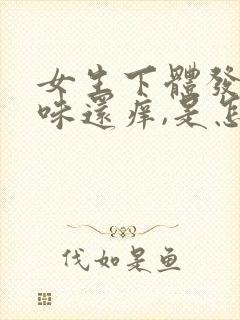 女生下體發
味還痒,是怎
代如是鱼